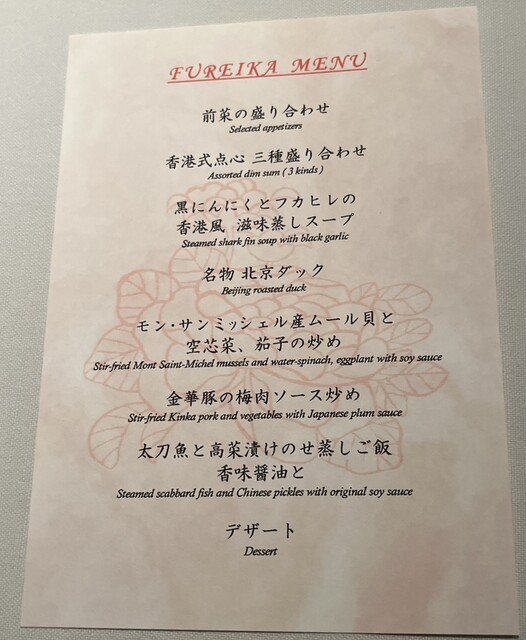 FUREIKA MENU
前菜の盛り合わせ
Selected appetizers
香港式点心 三種盛り合わせ
Assorted dim sum ( 3 kinds )
黒にんにくとフカヒレの
香港風 滋味蒸しスープ
Steamed shark fin soup with black garlic
名物 北京ダック
Beijing roasted duck
モン･サンミッシェル産ムール貝と
空芯菜、茄子の炒め
Stir-fried Mont Saint-Michel mussels and water-spinach, eggplant with soy sauce
金華豚の梅肉ソース炒め
Stir-fried Kinka pork and vegetables with Japanese plum sauce
太刀魚と高菜漬けのせ蒸しご飯
香味醤油と
Steamed scabbard fish and Chinese pickles with original soy sauce
デザート
Dessert